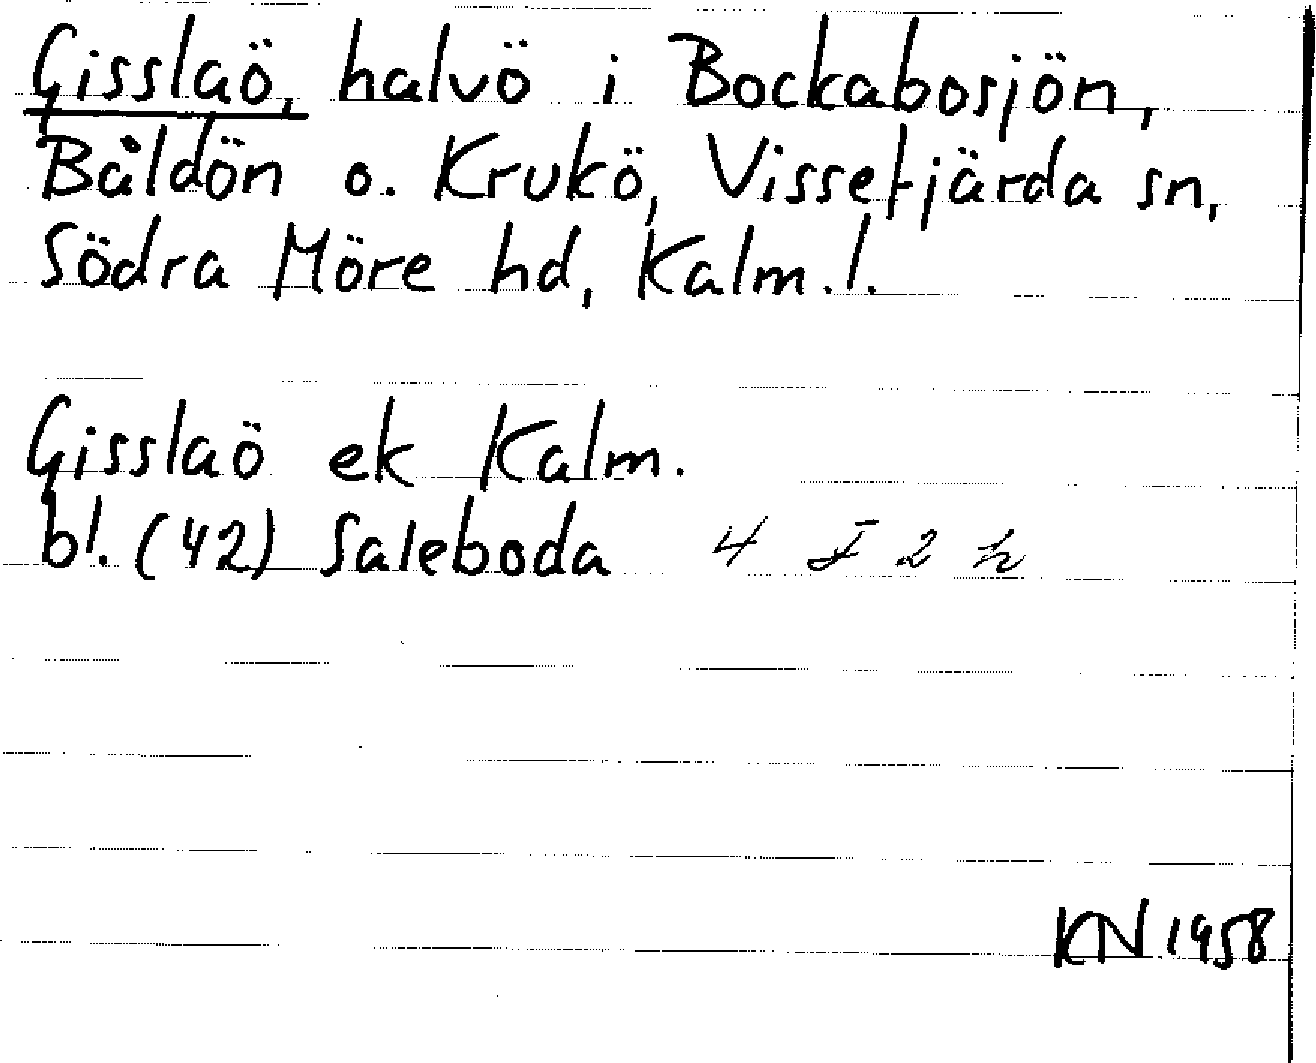 Gisslaö, halvö i Bockabosjön,
Båldön o. Krukö, Vissefjärda sn,
Södra Möre hd, Kalm.l.
Gisslaö ek Kalm.
bl. (42) Saleboda 4 F 2 h
KN 1958